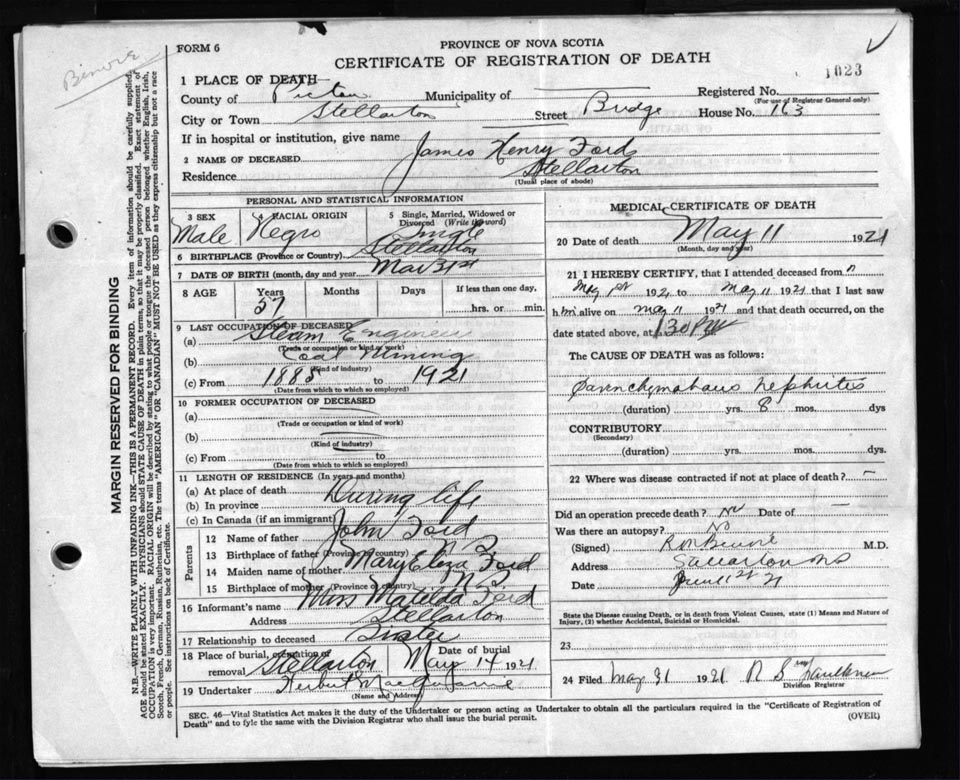 FORM 6
PROVINCE OF NOVA SCOTIA
CERTIFICATE OF REGISTRATION OF DEATH
1023
1 PLACE OF DEATH—
County of Pictou Municipality of Registered No.
(For use of Registrar General only)
City or Town Stellarton Street Bridge House No. 163
If in hospital or institution, give name
2 NAME OF DECEASED James Henry Ford
Residence Stellarton
(Usual place of abode)
PERSONAL AND STATISTICAL INFORMATION
3 SEX Male
4 RACIAL ORIGIN Negro
5 Single, Married, Widowed or Divorced (Write the word) Single
6 BIRTHPLACE (Province or Country) Stellarton
7 DATE OF BIRTH (month, day and year) Mar 31st
8 AGE Years 57 Months Days If less than one day, hrs. or min.
9 LAST OCCUPATION OF DECEASED
(a) Steam Engineer
(Trade or occupation or kind of work)
(b) Coal Mining
(Kind of industry)
(c) From 1885 to 1921
(Date from which to which so employed)
10 FORMER OCCUPATION OF DECEASED
(a)
(Trade or occupation or kind of work)
(b)
(Kind of industry)
(c) From to
(Date from which to which so employed)
11 LENGTH OF RESIDENCE (In years and months)
(a) At place of death During life
(b) In province
(c) In Canada (if an immigrant)
Parents
12 Name of father John Ford
13 Birthplace of father (Province or country) N S
14 Maiden name of mother Mary Eliza Ford
15 Birthplace of mother (Province or country) N S
16 Informant's name Miss Matilda Ford
Address Stellarton
17 Relationship to deceased Sister
18 Place of burial, cremation or removal Stellarton Date of burial May 14 1921
19 Undertaker Herbert
(Name and Address)
MEDICAL CERTIFICATE OF DEATH
20 Date of death May 11 1921
(Month, day and year)
21 I HEREBY CERTIFY, that I attended deceased from
May 1st 1921 to May 11 1921 that I last saw
him alive on May 11 1921 and that death occurred, on the
date stated above, at 1.30 PM
The CAUSE OF DEATH was as follows:
Parenchymatous Nephritis
(duration) yrs. 8 mos. dys
CONTRIBUTORY
(Secondary)
(duration) yrs. mos. dys.
22 Where was disease contracted if not at place of death? —
Did an operation precede death? No Date of —
Was there an autopsy? No
(Signed) M.D.
Address Stellarton NS
Date 21
State the Disease causing Death, or in death from Violent Causes, state (1) Means and Nature of
Injury, (2) whether Accidental, Suicidal or Homicidal.
23
24 Filed May 31 1921 R S Faulkner
Division Registrar
SEC. 46—Vital Statistics Act makes it the duty of the Undertaker or person acting as Undertaker to obtain all the particulars required in the "Certificate of Registration of
Death" and to fyle the same with the Division Registrar who shall issue the burial permit.
(OVER)
MARGIN RESERVED FOR BINDING
N.B.—WRITE PLAINLY WITH UNFADING INK—THIS IS A PERMANENT RECORD. Every item of information should be carefully supplied.
AGE should be stated EXACTLY. PHYSICIANS should STATE CAUSE OF DEATH in plain terms, so that it may be properly classified. Exact statement of
OCCUPATION is very important. RACIAL ORIGIN will be described by stating to what people or tongue the deceased person belonged whether English, Irish,
Scotch, French, German, Russian, Ruthenian, etc. The terms "AMERICAN" OR "CANADIAN" MUST NOT BE USED as they express citizenship but not a race
or people. See instructions on back of Certificate.